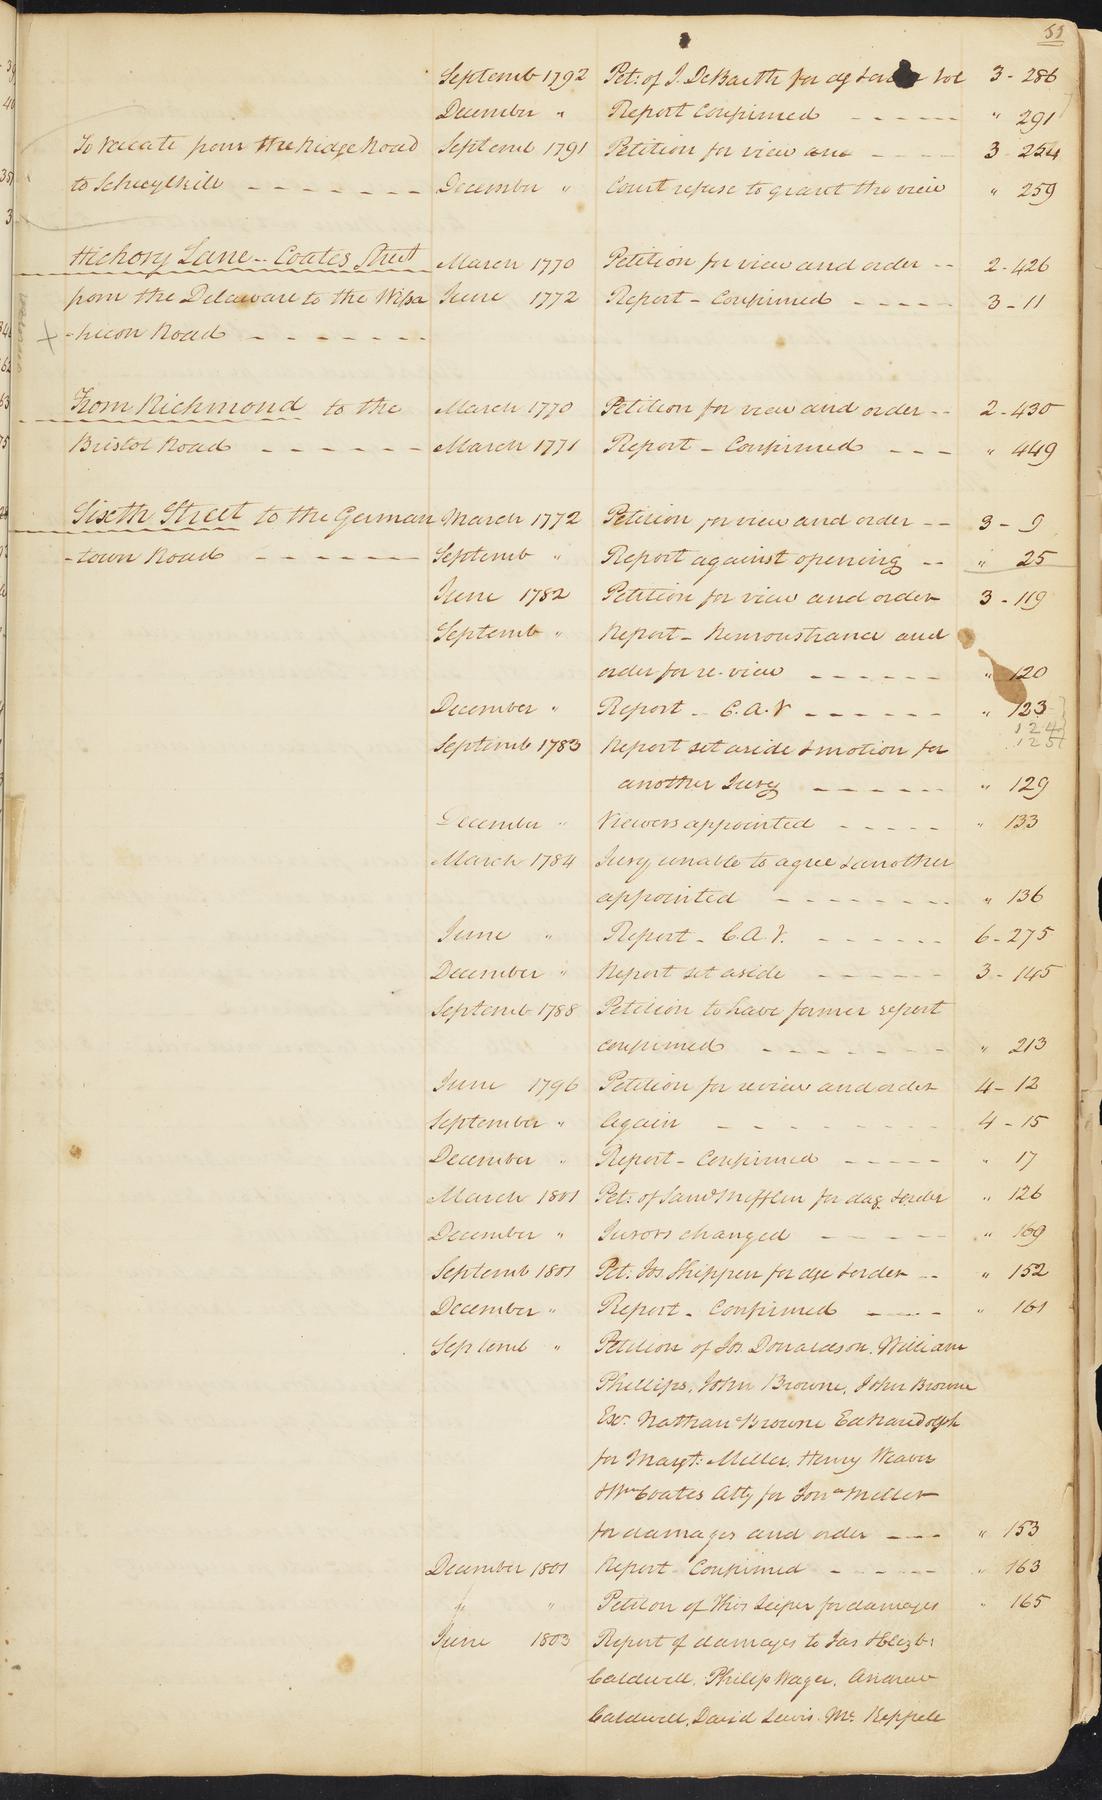 55
Septemb 1792 Pet: of J. DeBarth for dg & order vol 3 - 286
December " Report Confirmed - - - - - " 291
To vacate from the Ridge Road Septemb 1791 Petition for view and - - - - 3 254
to Schuylkill - - - - - - - December " Court refuse to grant the view " 259
Hickory Lane - Coates Street March 1770 Petition for view and order - - 2 - 426
from the Delaware to the Wissa June 1772 Report - Confirmed - - - - - 3 - 11
-hicon Road - - - - - - -
From Richmond to the March 1770 Petition for view and order - - 2 - 430
Bristol Road - - - - - - March 1771 Report - Confirmed - - - " 449
Sixth Street to the German March 1772 Petition for view and order - - 3 - 9
-town Road - - - - - - Septemb " Report against opening - - " 25
June 1782 Petition for view and order 3 - 119
Septemb " Report - Remonstrance and
order for re-view - - - - - - " 120
December " Report - C.A.V - - - - - - " 123
124
125
Septemb 1783 Report set aside & motion for
another Jury - - - - - - " 129
December " Viewers appointed - - - - - " 133
March 1784 Jury unable to agree & another
appointed - - - - - - - - " 136
June " Report - C.A.V. - - - - - - 6 - 275
December " Report set aside - - - - - - 3 - 145
Septemb 1788 Petition to have former report
confirmed - - - - - - - - " 213
June 1796 Petition for review and order 4 - 12
September " Again - - - - - - - - - 4 - 15
December " Report - Confirmed - - - - - " 17
March 1801 Pet: of Saml Mifflin for dag. & order " 126
December " Jurors changed - - - - - " 169
Septemb 1801 Pet: Jos Shippen for dge & order - - " 152
December " Report - Confirmed - - - - " 161
Septemb " Petition of Jos Donaldson. William
Phillips, John Browne, John Browne
Exr. Nathan Browne Ed Randolph
for Margt: Miller, Henry Weaver
& Wm Coates Atty for Jona Miller
for damages and order - - - " 153
December 1801 Report - Confirmed - - - - - - " 163
" Petition of Thos Leiper for damages " 165
June 1803 Report of damages to Jas & Elizb:
Caldwell, Philip Wager, Andrew
Caldwell, David Lewis. Mr. Keppele